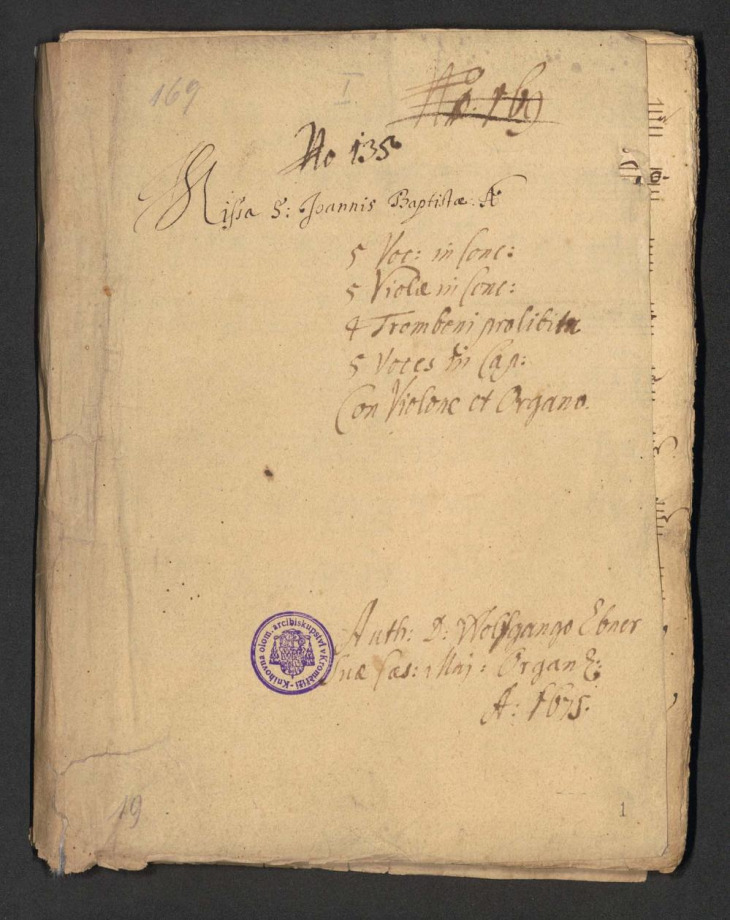 169
I
No. 169
No 135
Missa S: Joannis Baptistæ. A
5 Voc: in Conc:
5 Violæ in Conc:
4 Tromboni prolibitu
5 Voces in Cap:
Con Violone et Organo.
Auth: D: Wolffgango Ebner
Suæ Cæs: Maj: Organ:
A: 1675.
Knihovna olom. arcibiskupství v Kroměříži
19
1